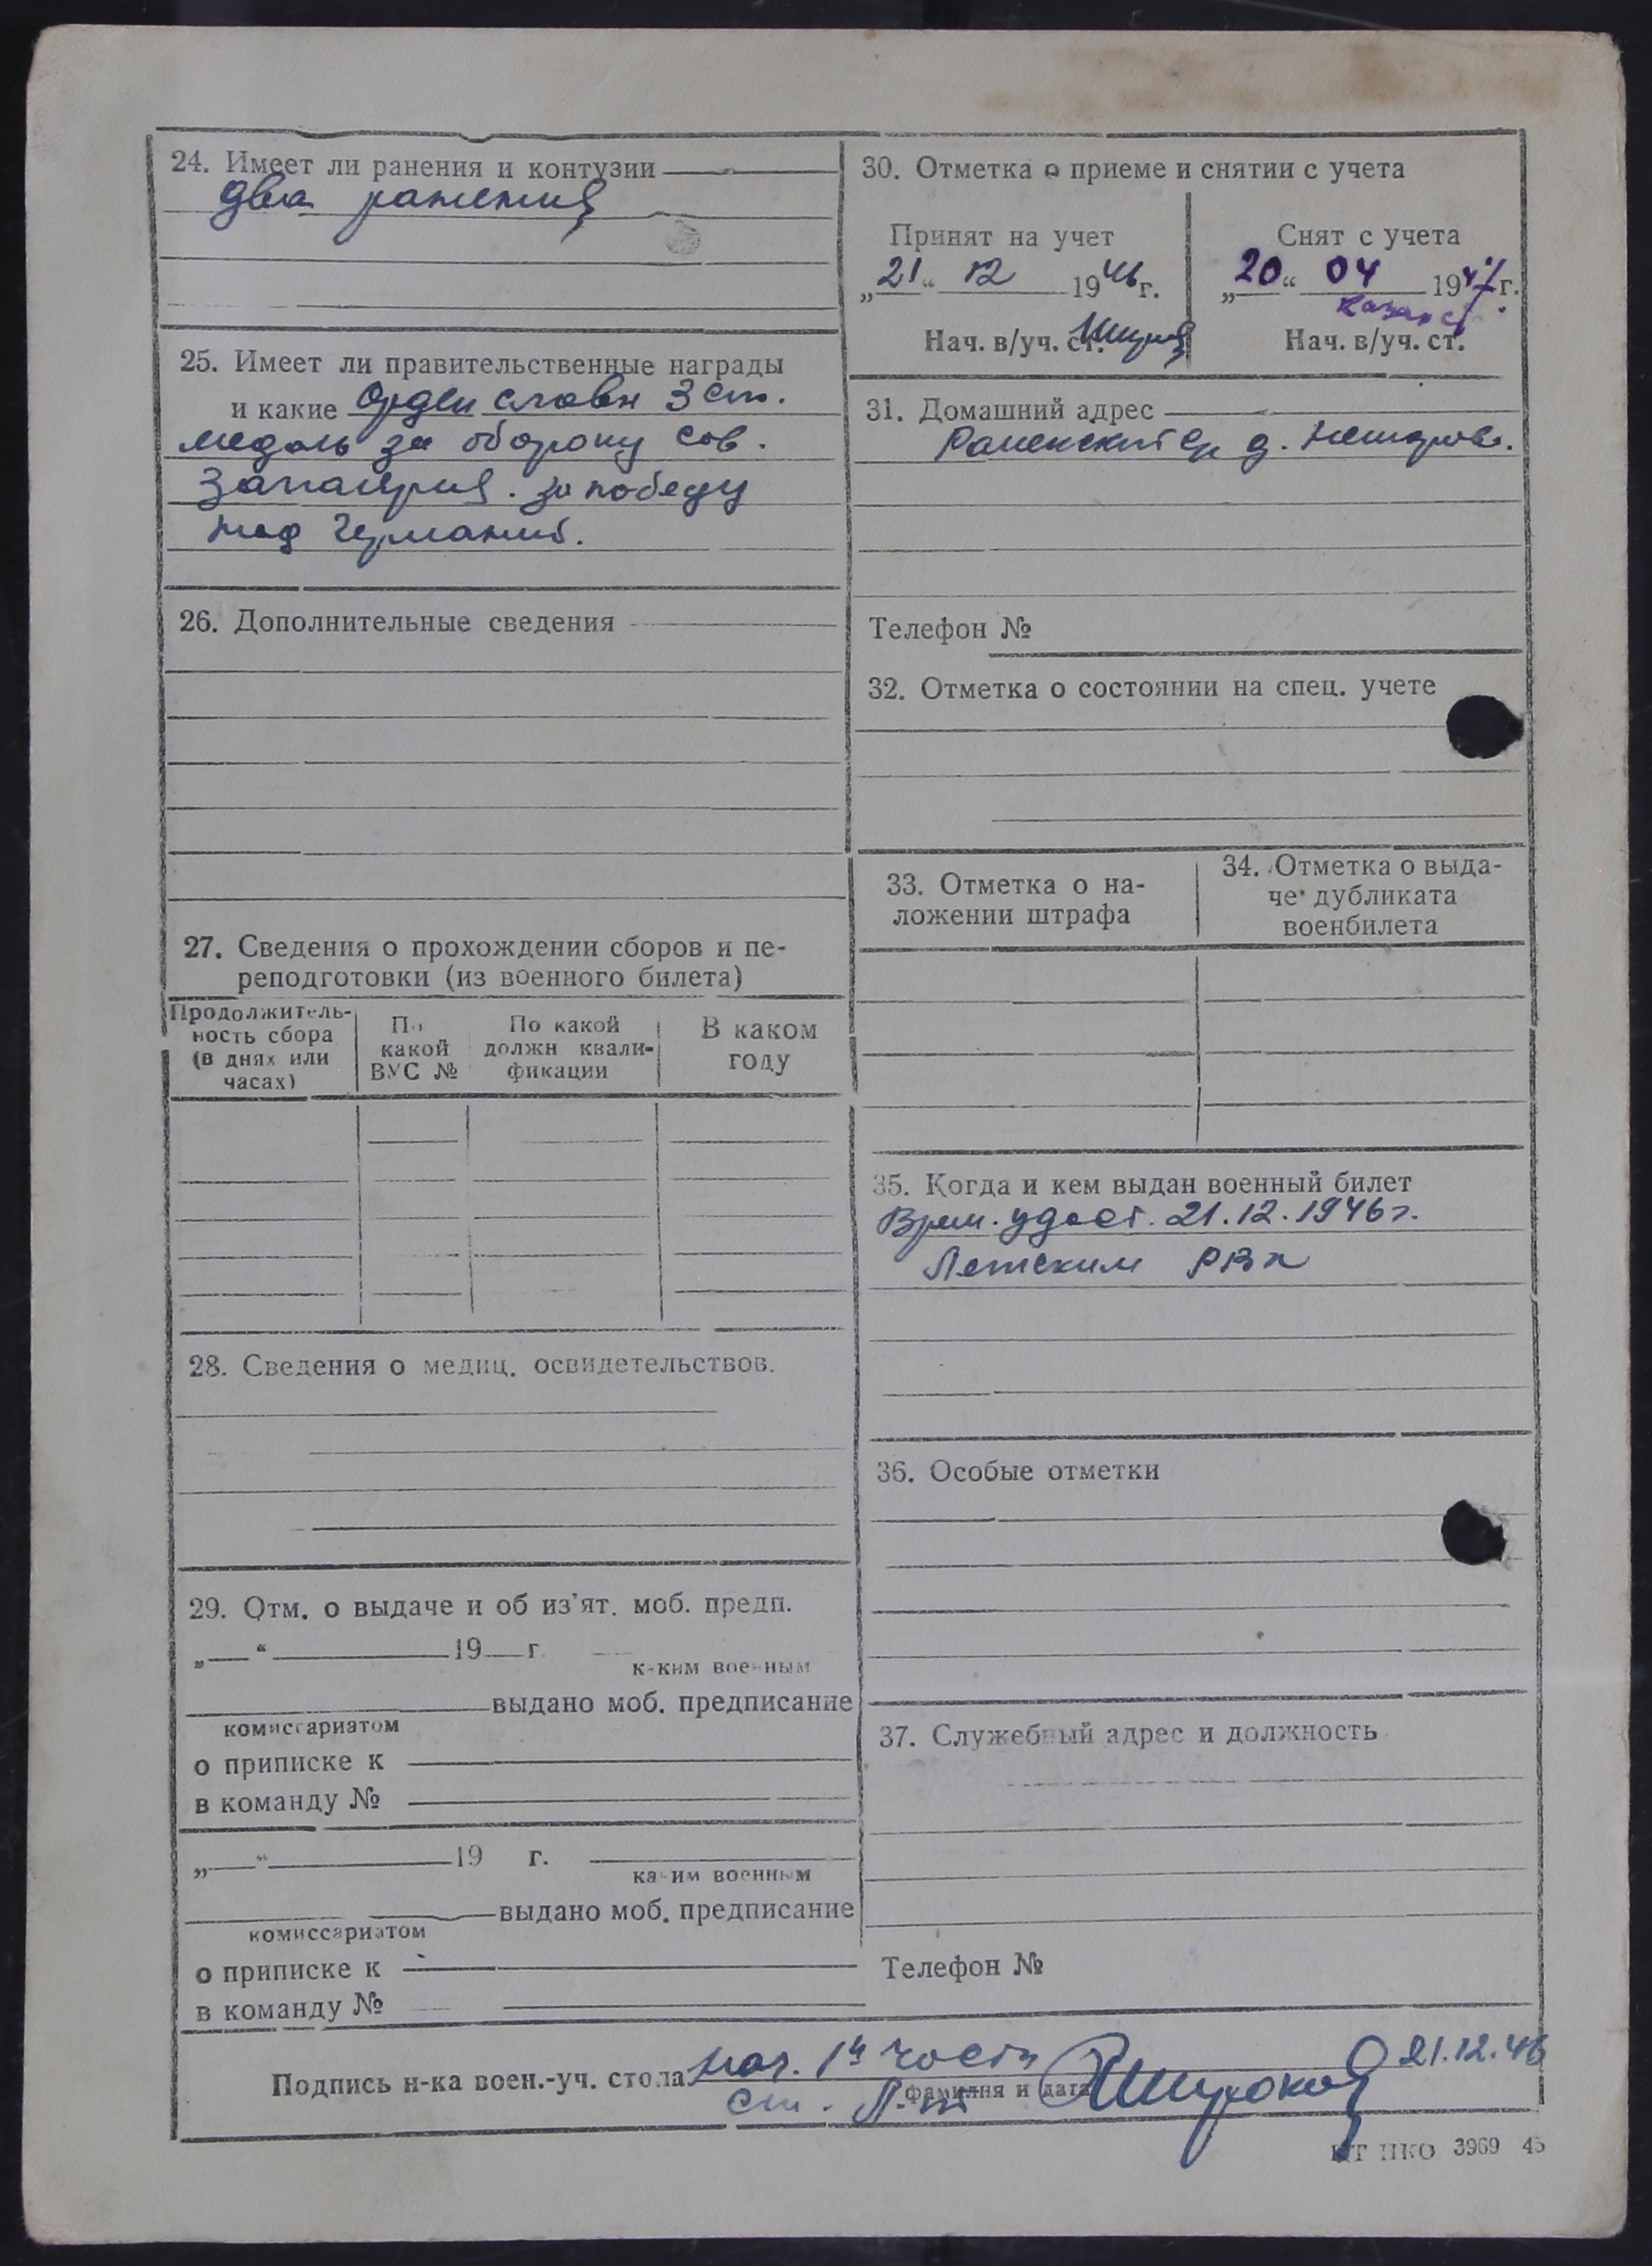 24. Имеет ли ранения и контузии
два ранения
25. Имеет ли правительственные награды
и какие Орден славы 3 ст.
медаль за оборону Сов.
Заполярия. за победу
над Германий.
26. Дополнительные сведения
27. Сведения о прохождении сборов и пе-
реподготовки (из военного билета)
Продолжитель-
ность сбора
(в днях или
часах)
По
какой
ВУС №
По какой
должн квали-
фикации
В каком
году
28. Сведения о медиц. освидетельствов.
29. Отм. о выдаче и об из'ят. моб. предп.
„ “ 19 г.
каким военным
выдано моб. предписание
комиссариатом
о приписке к
в команду №
„ “ 19 г.
каким военным
выдано моб. предписание
комиссариатом
о приписке к
в команду №
30. Отметка о приеме и снятии с учета
Принят на учет
„21“ 12 1946 г.
Нач. в/уч. ст.
Снят с учета
„20“ 04 1947 г.
Нач. в/уч. ст.
31. Домашний адрес
д.
Телефон №
32. Отметка о состоянии на спец. учете
33. Отметка о на-
ложении штрафа
34. Отметка о выда-
че дубликата
военбилета
35. Когда и кем выдан военный билет
Врем. удост. 21.12.1946 г.
Летским РВК
36. Особые отметки
37. Служебный адрес и должность
Телефон №
Подпись н-ка воен.-уч. стола Нач. 1й части 21.12.46
ст. Л-т фамилия и дата
НКО 3969 45